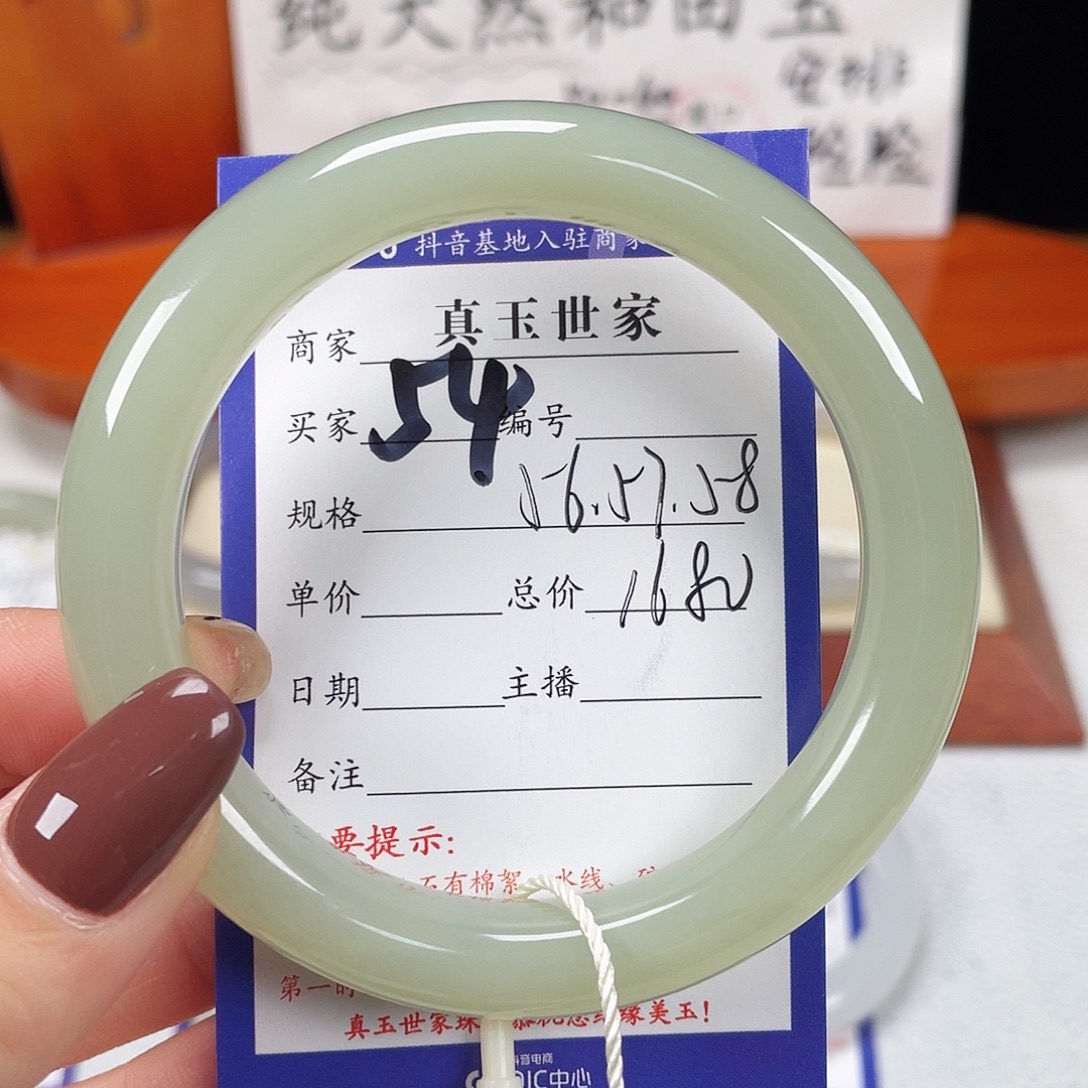 纯天然和田玉
安排
抖音基地入驻商家
商家 真玉世家
买家 54 编号
规格 56.57.58
单价 总价 1680
日期 主播
备注
要提示:
石有棉絮、水线、
第一时
真玉世家珠 美玉!
抖音电商
QIC中心